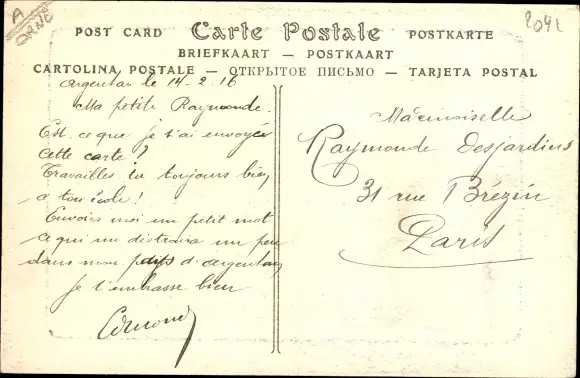 A
ORNE
2041
POST CARD Carte Postale POSTKARTE
BRIEFKAART — POSTKAART
CARTOLINA POSTALE — ОТКРЫТОЕ ПИСЬМО — TARJETA POSTAL
Argentan le 14-2-16
Ma petite Raymonde.
Est ce que je t'ai envoyée
cette carte?
Travailles tu toujours bien
a ton école!
Envoies moi un petit mot
ce qui me distraira un peu
dans mon pays d'argentan
Je t'embrasse bien
Mademoiselle
Raymonde Desjardins
31 rue Brézin
Paris